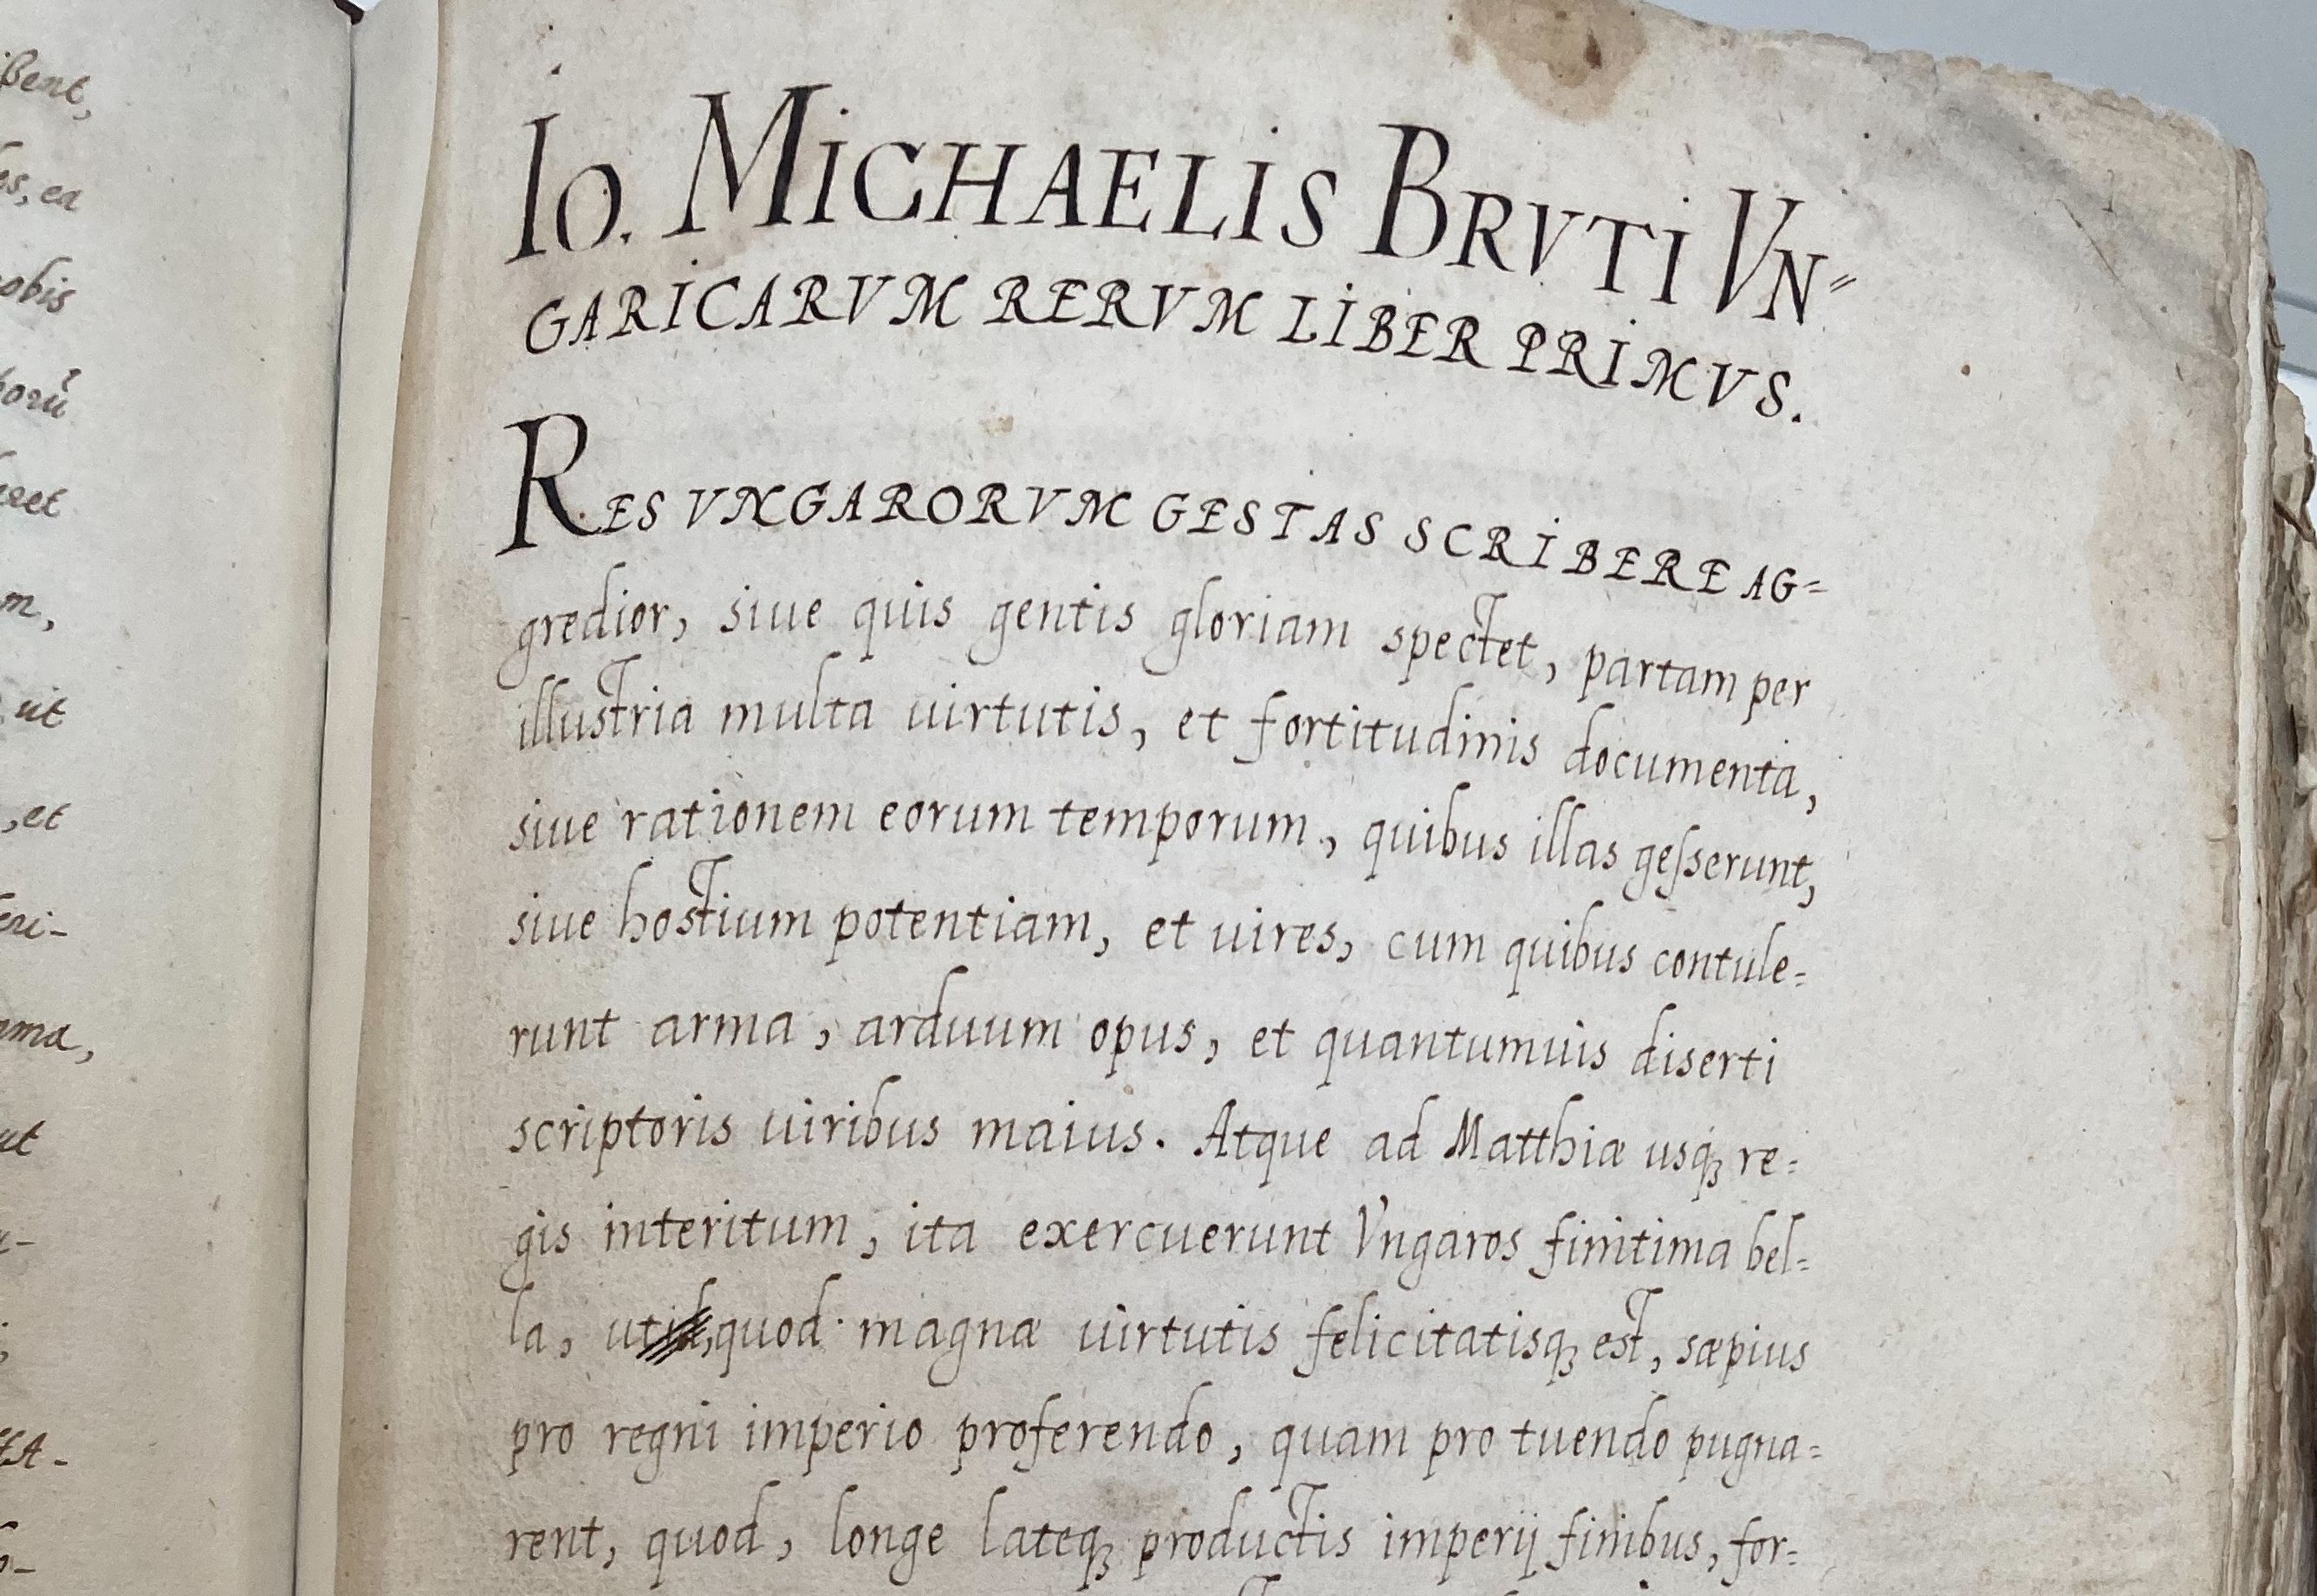 ßent,
os, ea
obis
m,
ut
, et
eri-
ma,
ut
IO. MICHAELIS BRVTI VN=
GARICARVM RERVM LIBER PRIMVS.
RES VNGARORVM GESTAS SCRIBERE AG=
gredior, siue quis gentis gloriam spectet, partam per
illustria multa uirtutis, et fortitudinis documenta,
siue rationem eorum temporum, quibus illas geſserunt,
siue hostium potentiam, et uires, cum quibus contule=
runt arma, arduum opus, et quantumuis diserti
scriptoris uiribus maius. Atque ad Matthiæ usq̨ re=
gis interitum, ita exercuerunt Vngaros finitima bel=
la, ut quod magnæ uirtutis felicitatisq̨ est, sæpius
pro regni imperio proferendo, quam pro tuendo pugna=
rent, quod, longe lateq̨ productis imperij finibus, for=